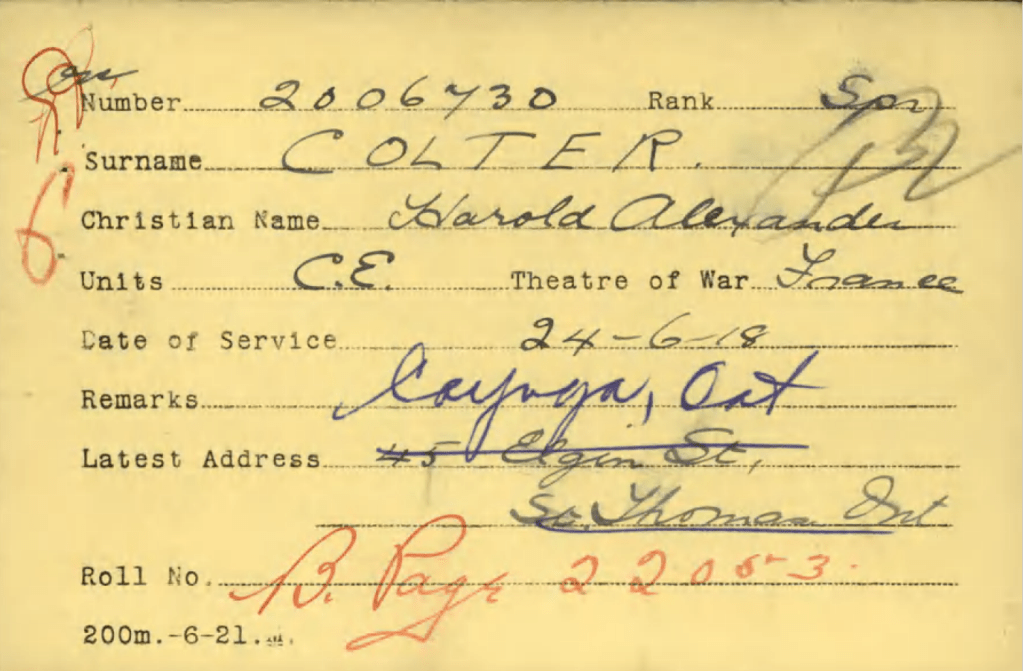 Number 2006730 Rank Spr
Surname COLTER.
Christian Name Harold Alexander
Units C.E. Theatre of War France
Date of Service 24-6-18
Remarks Cayuga, Ont
Latest Address 45 Elgin St,
St. Thomas Ont
Roll No. B. Page 22053.
200m.-6-21.